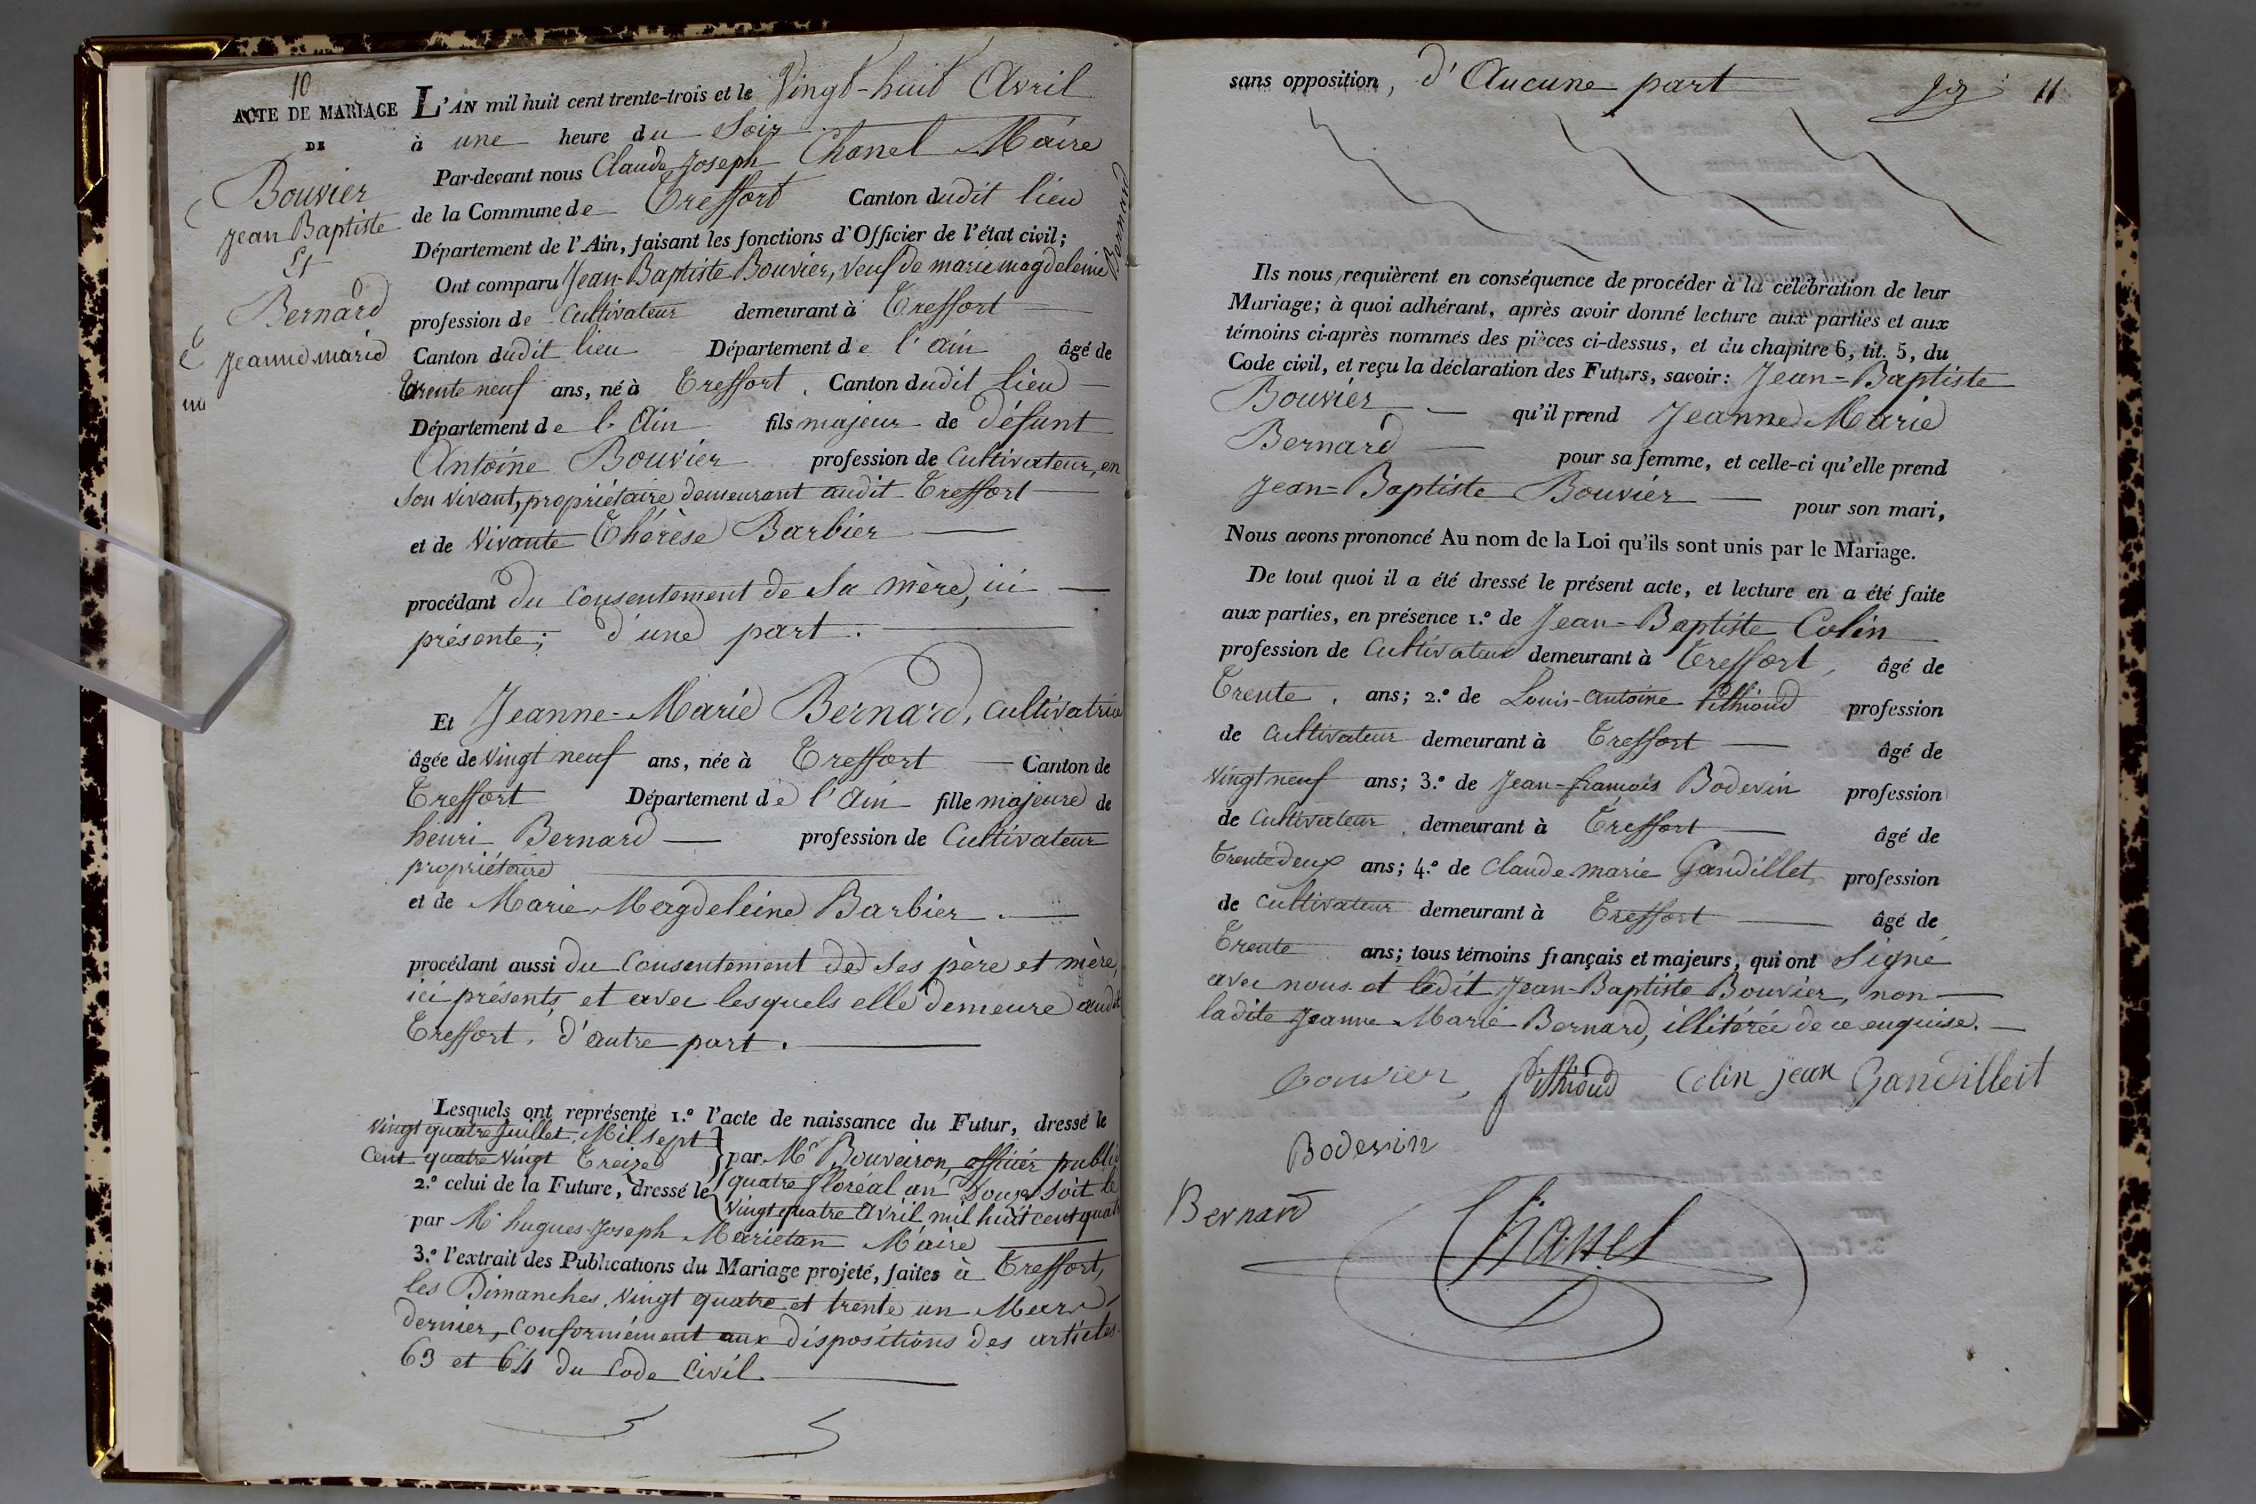 10
ACTE DE MARIAGE
DE
Bouvier
Jean Baptiste
Et
Bernard
Jeanne marie
L'AN mil huit cent trente-trois et le Vingt-huit Avril
à une heure du Soir
Par-devant nous Claude Joseph Chanel Maire
de la Commune de Treffort Canton dudit lieu
Département de l'Ain, faisant les fonctions d'Officier de l'état civil;
Ont comparu Jean-Baptiste Bouvier, veuf de marie magdeleine Bernard
profession de Cultivateur demeurant à Treffort
Canton dudit lieu Département de l'ain âgé de
trente neuf ans, né à Treffort. Canton dudit lieu
Département de l'Ain fils majeur de défunt
Antoine Bouvier profession de Cultivateur, en
Son vivant, propriétaire demeurant audit Treffort
et de Vivante Thérèse Barbier
procédant du Consentement de Sa mère, ici
présente; d'une part.
Et Jeanne-Marie Bernard, Cultivatrice
âgée de vingt neuf ans, née à Treffort Canton de
Treffort Département de l'Ain fille majeure de
henri Bernard profession de Cultivateur
propriétaire
et de Marie Magdeleine Barbier.
procédant aussi du Consentement de Ses père et mère,
ici présents, et avec lesquels elle demeure audit
Treffort, d'autre part.
Lesquels ont représenté 1.º l'acte de naissance du Futur, dressé le
vingt quatre Juillet, Mil sept
Cent quatre vingt Treize par Mr Bouveiron, officier public
2.º celui de la Future, dressé le quatre floréal an Douze soit le
vingt quatre Avril, mil huit cent quatre
par Mr hugues-Joseph Marietan Maire
3.º l'extrait des Publications du Mariage projeté, faites à Treffort,
les Dimanches, vingt quatre et trente un Mars
dernier, Conformément aux dispositions des articles
63 et 64 du Code Civil.
11
sans opposition, d'Aucune part
Ils nous requièrent en conséquence de procéder à la célébration de leur
Mariage; à quoi adhérant, après avoir donné lecture aux parties et aux
témoins ci-après nommés des pièces ci-dessus, et du chapitre 6, tit. 5, du
Code civil, et reçu la déclaration des Futurs, savoir: Jean-Baptiste
Bouvier qu'il prend Jeanne Marie
Bernard pour sa femme, et celle-ci qu'elle prend
Jean-Baptiste Bouvier pour son mari,
Nous avons prononcé Au nom de la Loi qu'ils sont unis par le Mariage.
De tout quoi il a été dressé le présent acte, et lecture en a été faite
aux parties, en présence 1.º de Jean-Baptiste Colin
profession de Cultivateur demeurant à Treffort, âgé de
Trente. ans; 2.º de Louis-antoine Pithioud profession
de Cultivateur demeurant à Treffort âgé de
vingt neuf ans; 3.º de Jean-françois Bodevin profession
de Cultivateur, demeurant à Treffort âgé de
Trente deux ans; 4.º de Claude-marie Gandillet, profession
de Cultivateur demeurant à Treffort âgé de
Trente ans; tous témoins français et majeurs, qui ont Signé
avec nous et ledit Jean-Baptiste Bouvier, non
ladite Jeanne Marie Bernard, illitérée de ce enquise.
Bouvier, Pithioud Colin jean Gandilleit
Bodevin
Bernard Chanel